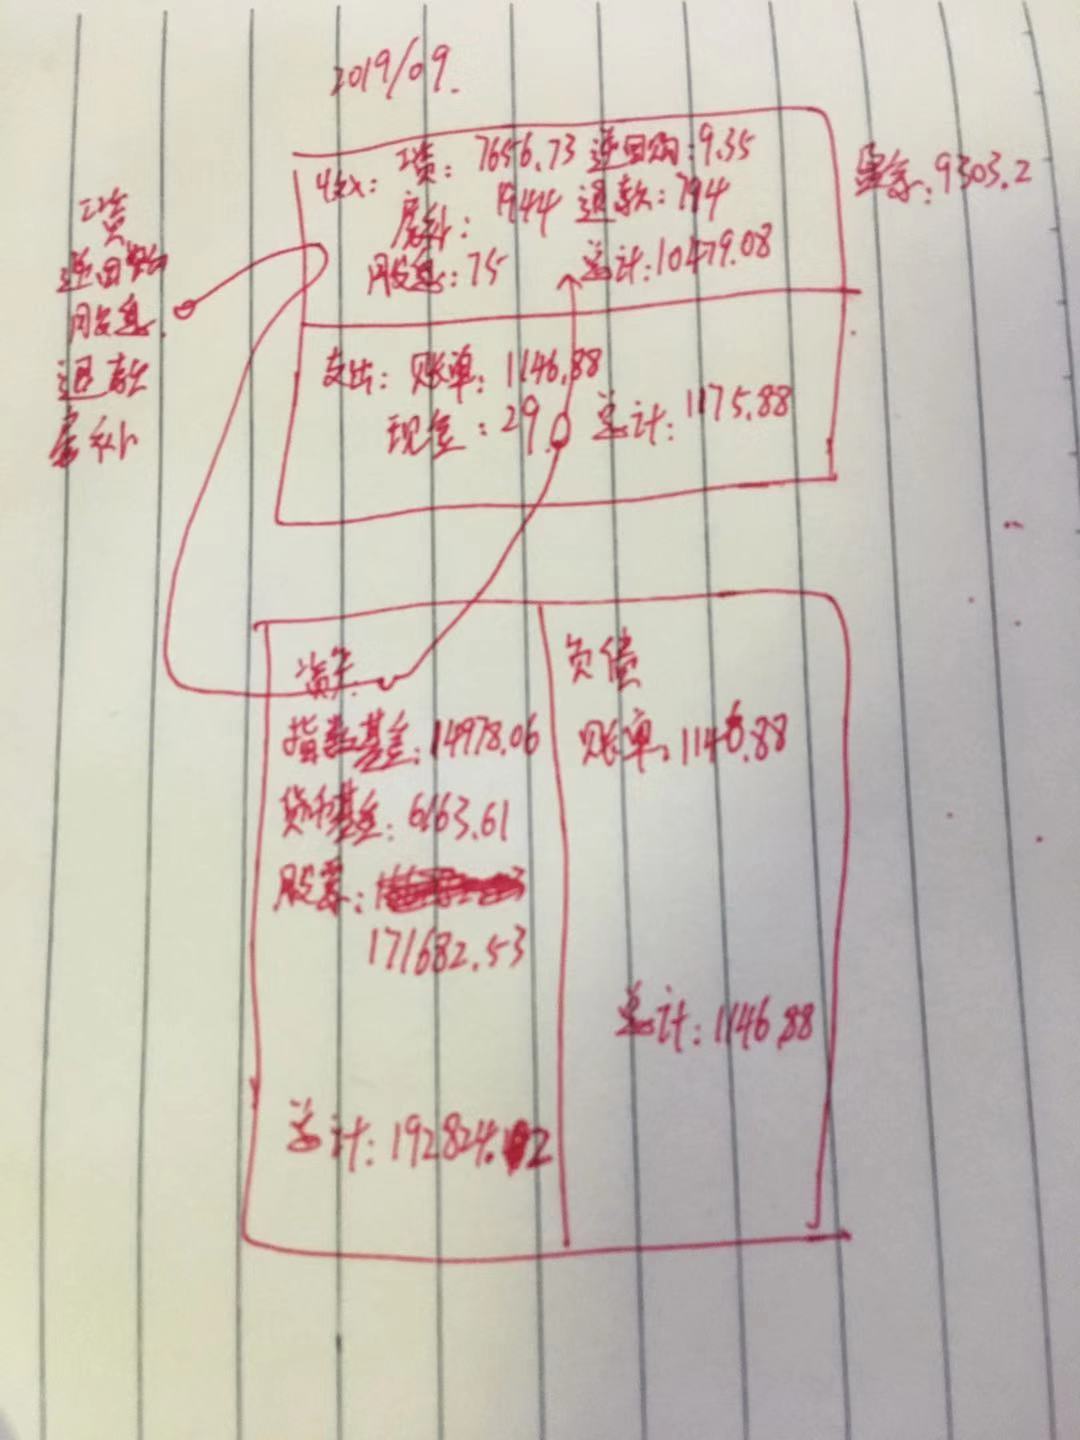 2019/09.
收入: 工资: 7656.73 逆回购: 9.35
房补: 1944 退款: 794
股息: 75 总计: 10479.08
盈余: 9303.2
工资
逆回购
股息
退款
房补
支出: 账单: 1146.88
现金: 29. 总计: 1175.88
资产
指数基金: 14978.06
货币基金: 6163.61
股票:
171682.53
总计: 192824.2
负债
账单: 1146.88
总计: 1146.88